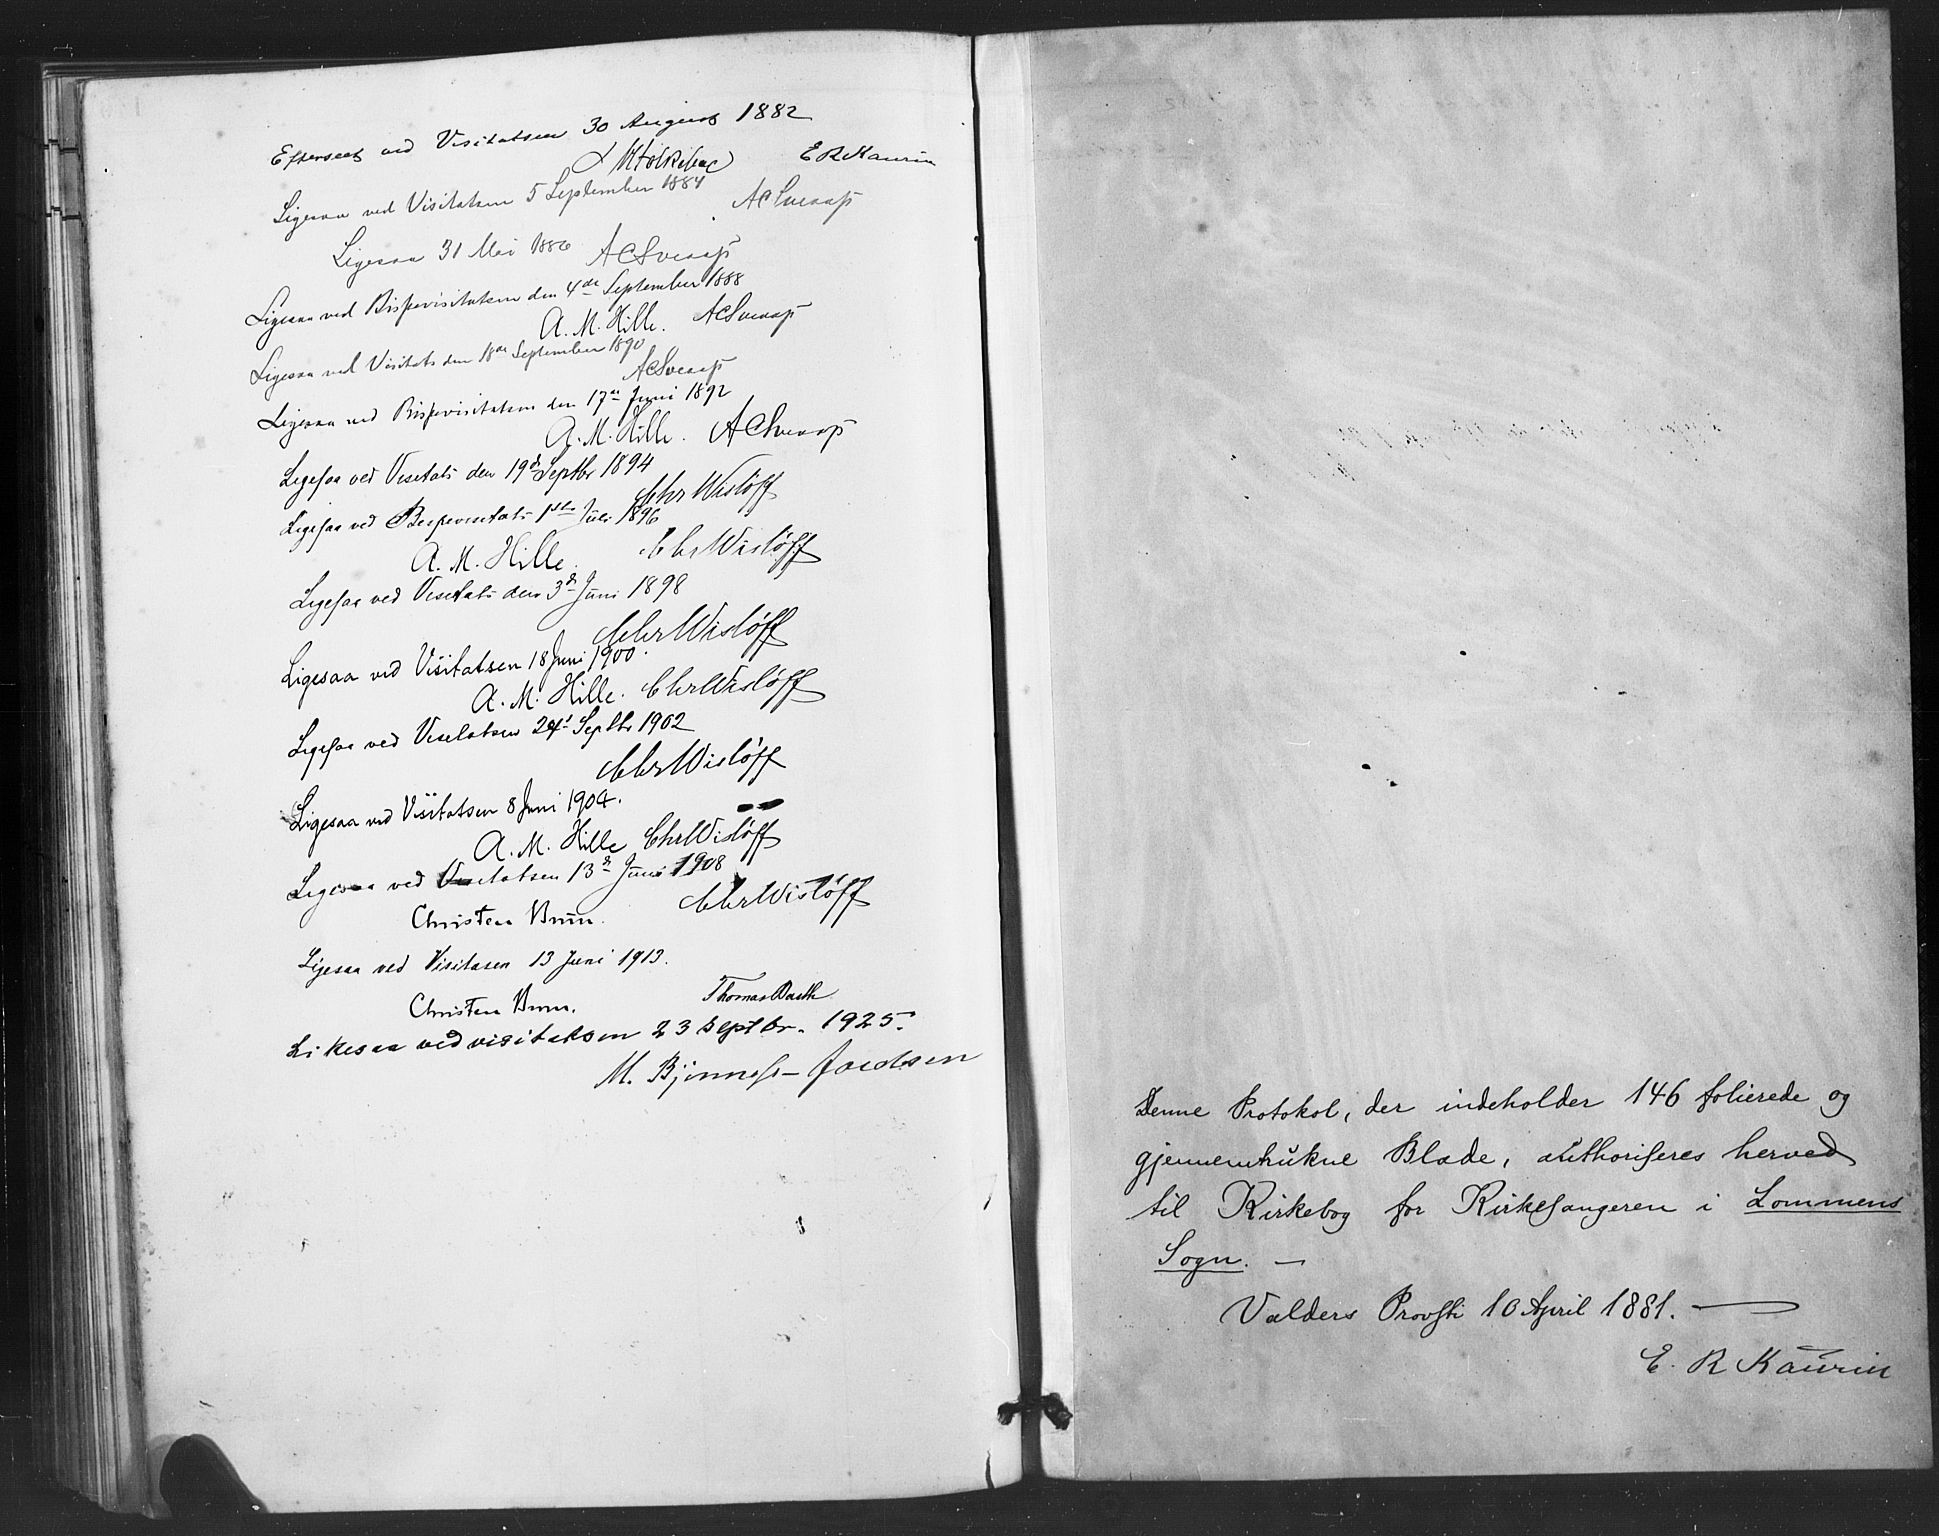 Efterseet ved Visitatsen 30 August 1882
E R Kaurin
Ligesaa ved Visitatsen 5 September 1884
AC Sveaas
Ligesaa 31 Mai 1886 AC Sveaas
Ligesaa ved Bispevisitatsen den 4de September 1888
A. M. Hille. AC Sveaas
Ligesaa ved Visitats den 18de September 1890
AC Sveaas
Ligesaa ved Bispevisitatsen den 17de Juni 1892
A. M. Hille. AC Sveaas
Ligesaa ved Visitats den 19de Septbr 1894
Chr Wisløff
Ligesaa ved Bispevisitats 1ste Juli 1896
A. M. Hille. Chr Wisløff
Ligesaa ved Visitats den 3de Juni 1898
Chr Wisløff
Ligesaa ved Visitatsen 18 Juni 1900.
A. M. Hille. Chr Wisløff
Ligesaa ved Visitatsen Septbr 1902
Chr Wisløff
Ligesaa ved Visitatsen 8 Juni 1904.
A. M. Hille Chr Wisløff
Ligesaa ved Visitatsen 13de Juni 1908
Christen Brun. Chr Wisløff
Ligesaa ved Visitasen 13 Juni 1913.
Christen Brun. Thomas Barth
Likesaa ved visitatsen 23 septbr. 1925.
M. Bjønness-Jacobsen
Denne Protokol, der indeholder 146 folierede og
gjennemtrukne Blade, authoriseres herved
til Kirkebog for Kirkesangeren i Lommens
Sogn. —
Valders Provsti 10 April 1881. —
E. R Kaurin